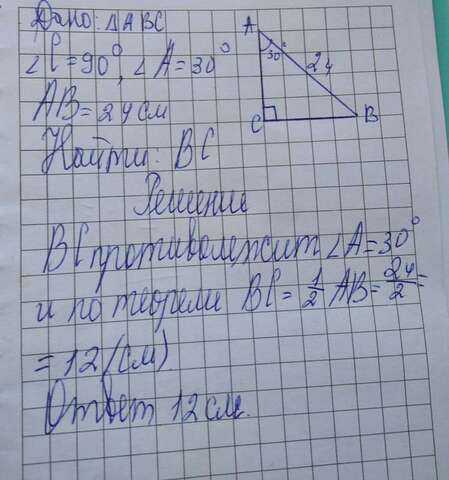 Дано: △ABC
∠C=90°, ∠A=30°
AB=24 см
Найти: BC
Решение
BC противолежит ∠A=30°
и по теореми BC = 1/2 AB = 24/2 =
= 12 (см)
Ответ 12 см.
A
30°
24
C
B